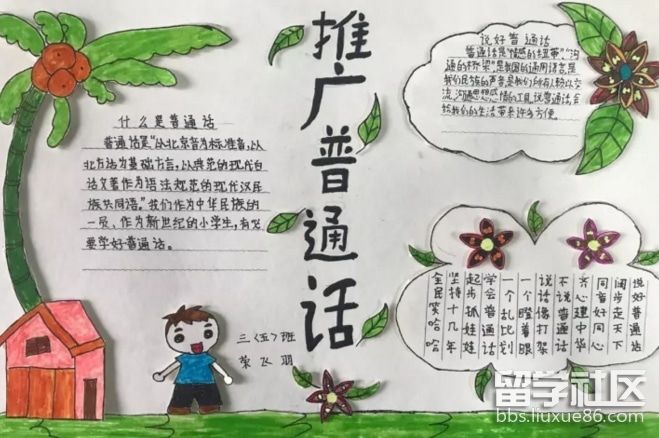 推广普通话
什么是普通话
普通话是"以北京音为标准音,以
北方话为基础方言,以典范的现代白
话文著作为语法规范的现代汉民
族共同语。"我们作为中华民族的
一员、作为新世纪的小学生,有必
要学好普通话。
说好普通话
普通话是"情感的纽带","沟
通的桥梁",是我国的通用语言,是
我们民族的声音,是我们所有人赖以交
流,沟通思想感情的工具,说普通话,会
给我们的生活带来许多方便。
说好普通话
阔步走天下
同音好同心
齐心建中华
不说普通话
说话像打架
一个瞪着眼
一个乱比划
学会普通话
起步抓娃娃
坚持十几年
全民笑哈哈
三〈五〉班
荣飞羽
留学社区
bbs.liuxue86.com